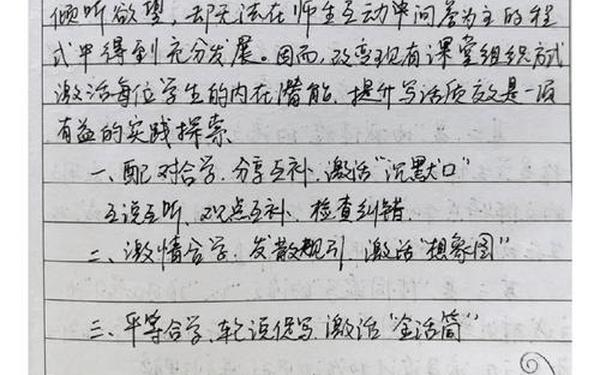 倾听欲望，却无法在师生互动串问答为主的程
式中得到充分发展。因而，改变现有课堂组织方式
激活每位学生的内在潜能，提升写话质效是一项
有益的实践探索.
一、配对合学，分享互补，激活“沉默口”
互说互听，观点互补，检查纠错.
二、激情合学，发散规引，激活“想象图”
三、平等合学，轮说促写，激活“全话筒”